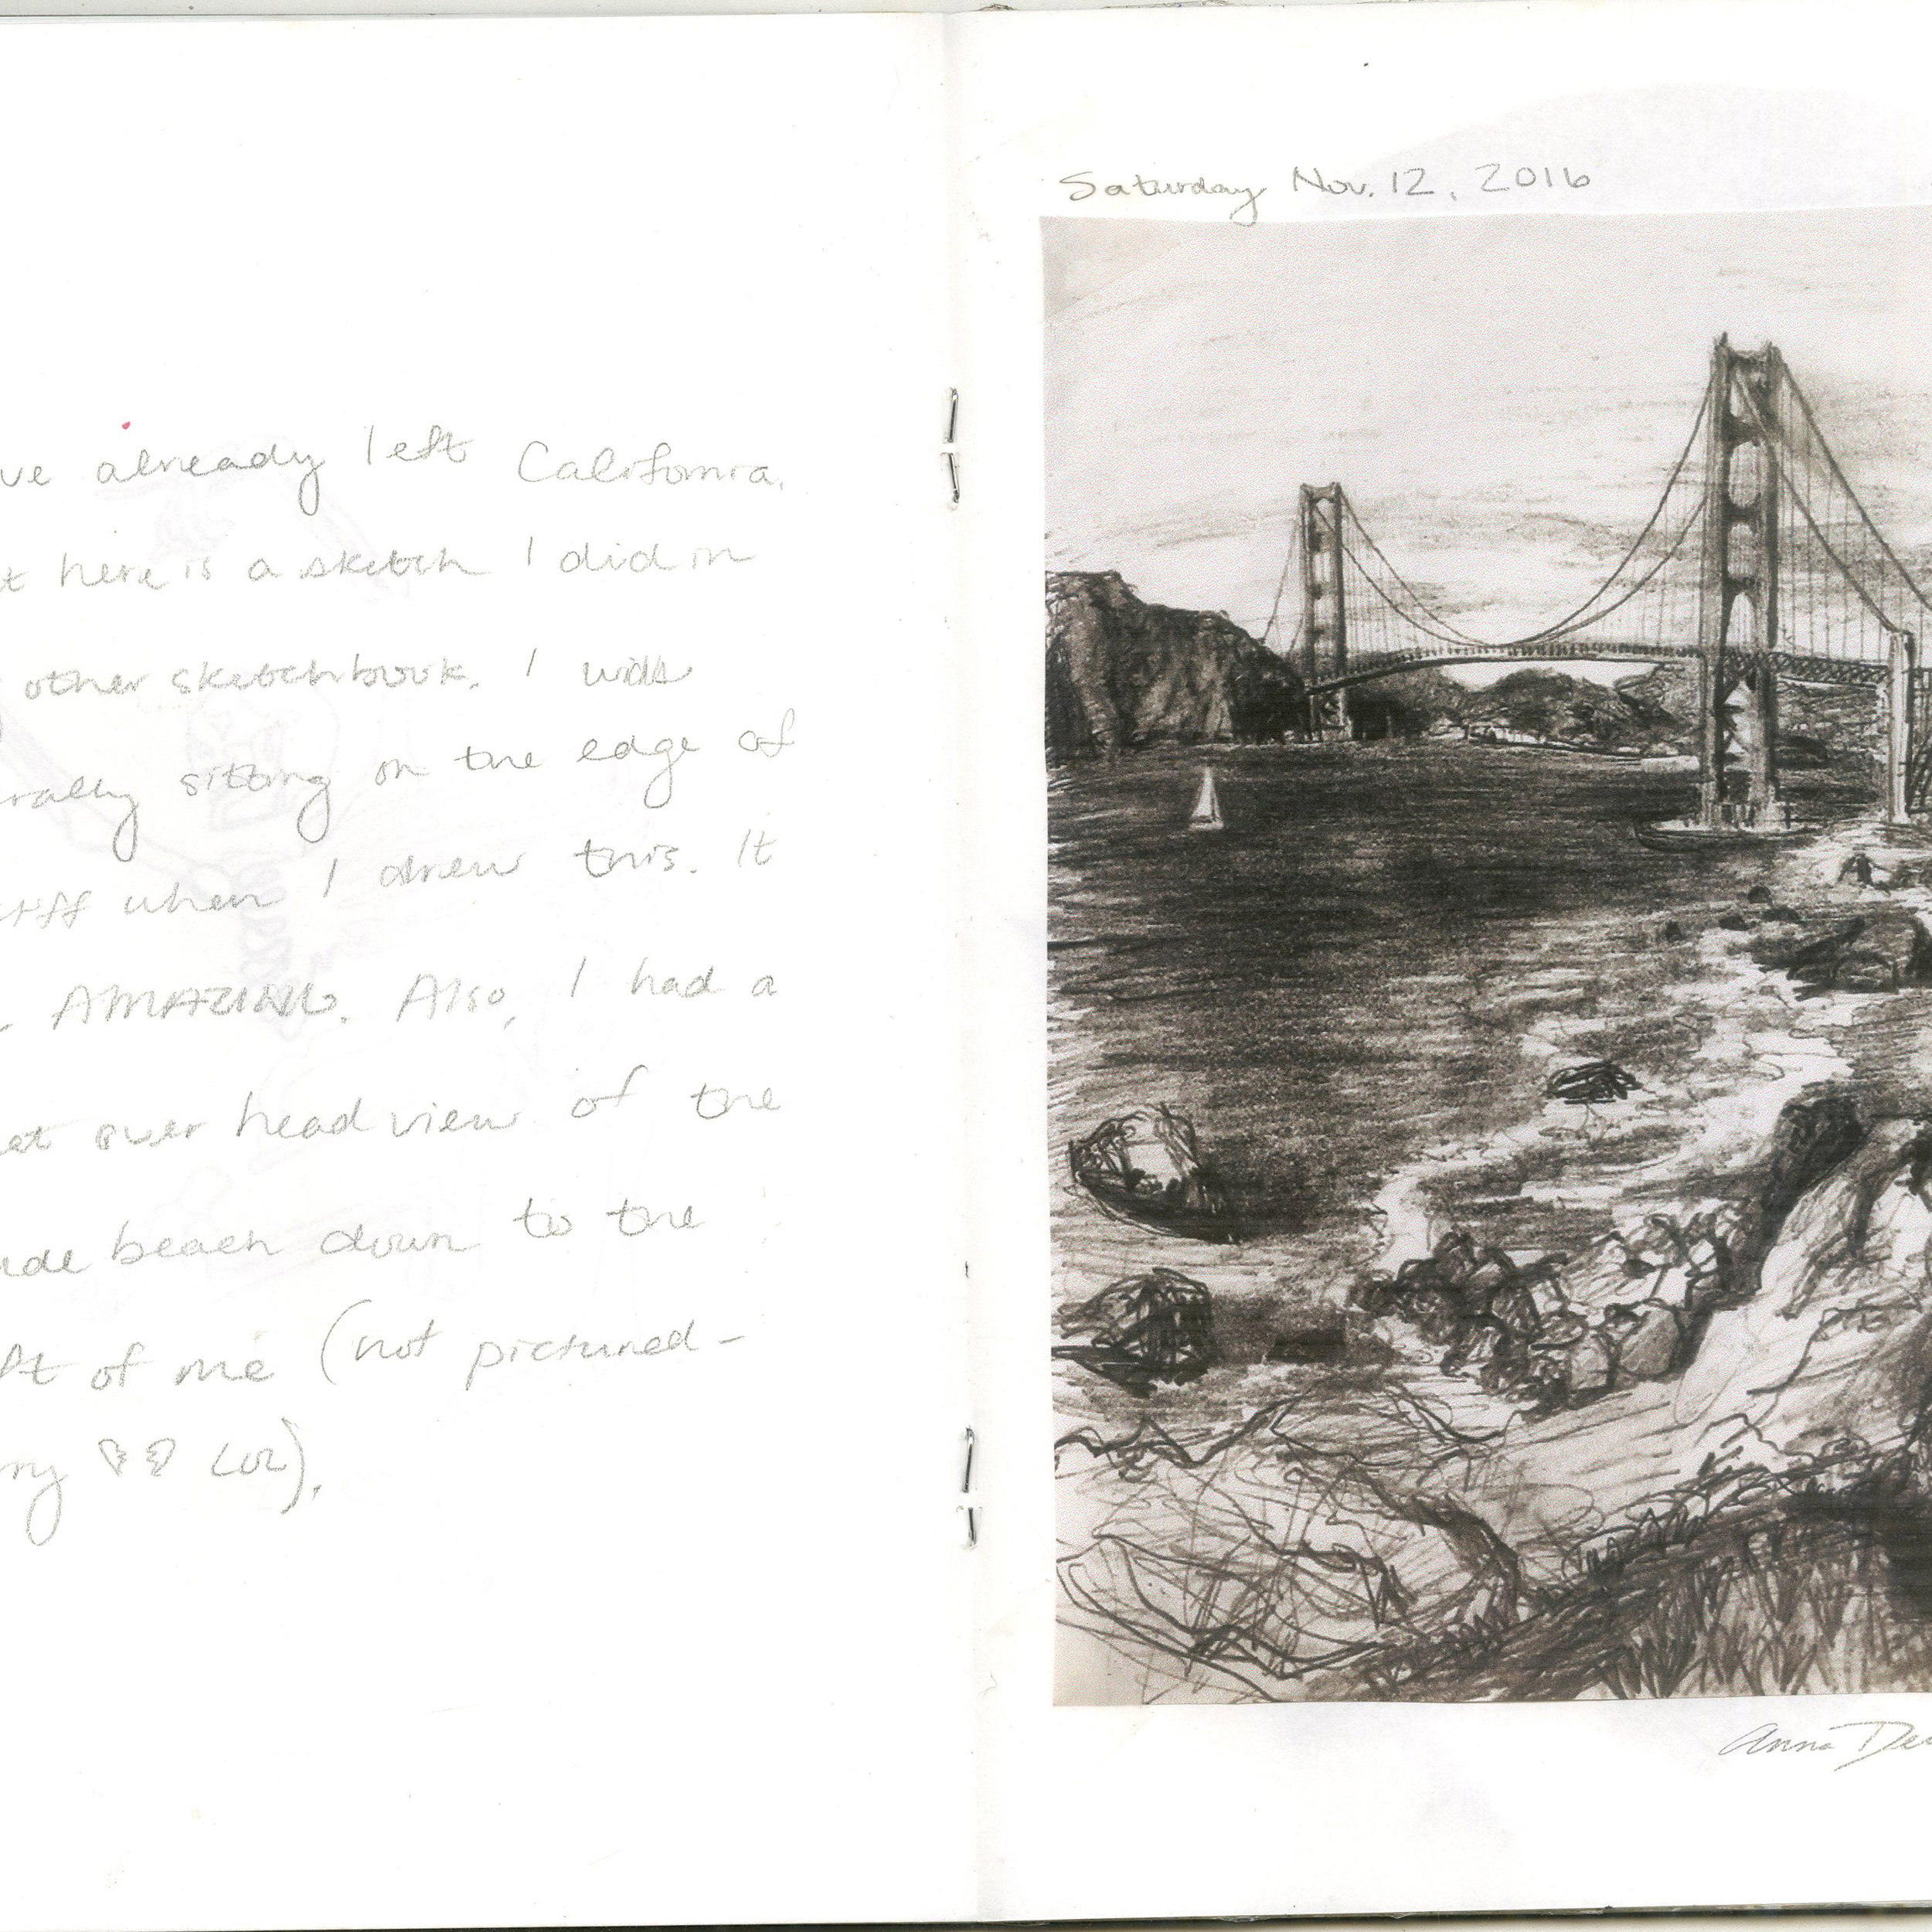 ve already left California.
t here is a sketch I did in
other sketchbook. I was
rally sitting on the edge of
iff when I drew this. It
AMAZING. Also, I had a
eat over head view of the
ude beach down to the
ft of me (not pictured-
rry LOL).
Saturday Nov. 12, 2016
Anna De